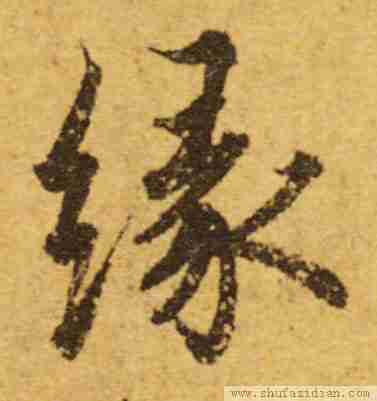 緣
www.shufazidian.com